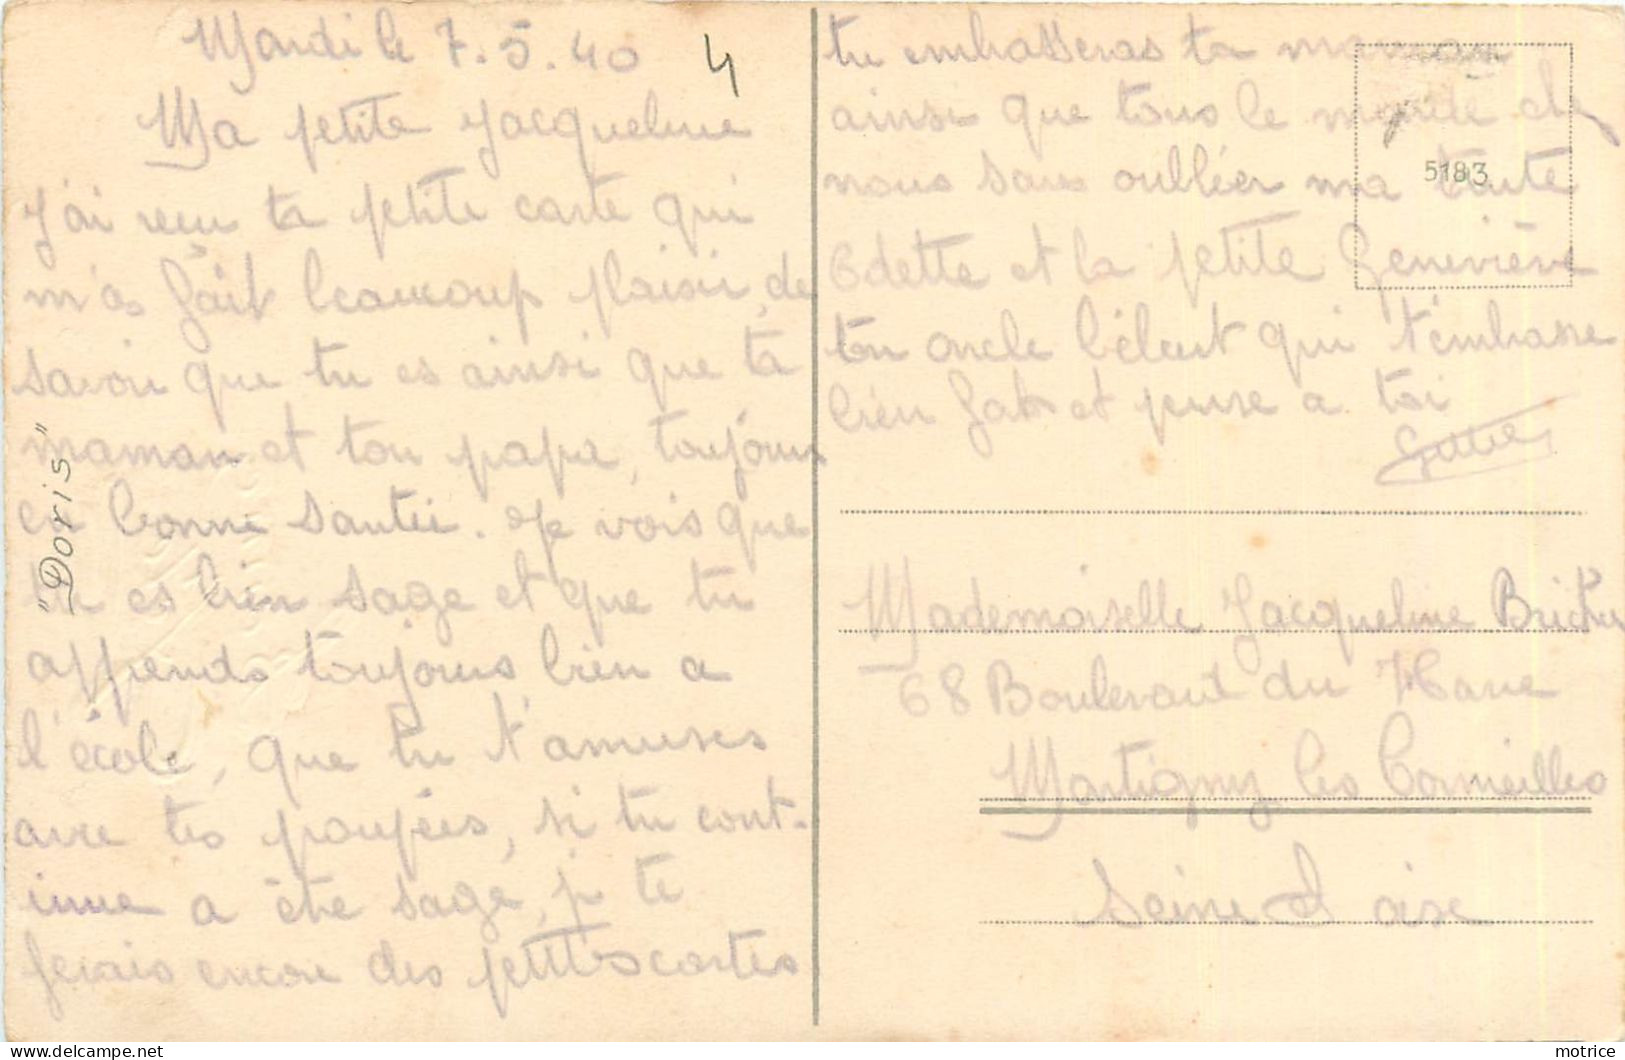 Mardi le 7.5.40
4
Ma petite Jacqueline
J'ai reçu ta petite carte qui
m'as fait beaucoup plaisir, de
savoir que tu es ainsi que ta
maman et ton papa, toujours
en bonne santée. Je vois que
tu es bien sage et que tu
apprends toujours bien a
l'école, que tu t'amuses
avec tes poupées, si tu cont-
inue a être sage, je te
ferais encore des petites cartes
"Doris"
tu embrasseras ta maman
ainsi que tous le monde de
nous sans oublier ma tante
Odette et la petite Geneviève
ton oncle qui t'embrasse
bien fort et pense a toi
5183
Mademoiselle Jacqueline
68 Boulevard du Havre
Montigny les Cormeilles
Seine et oise
motrice